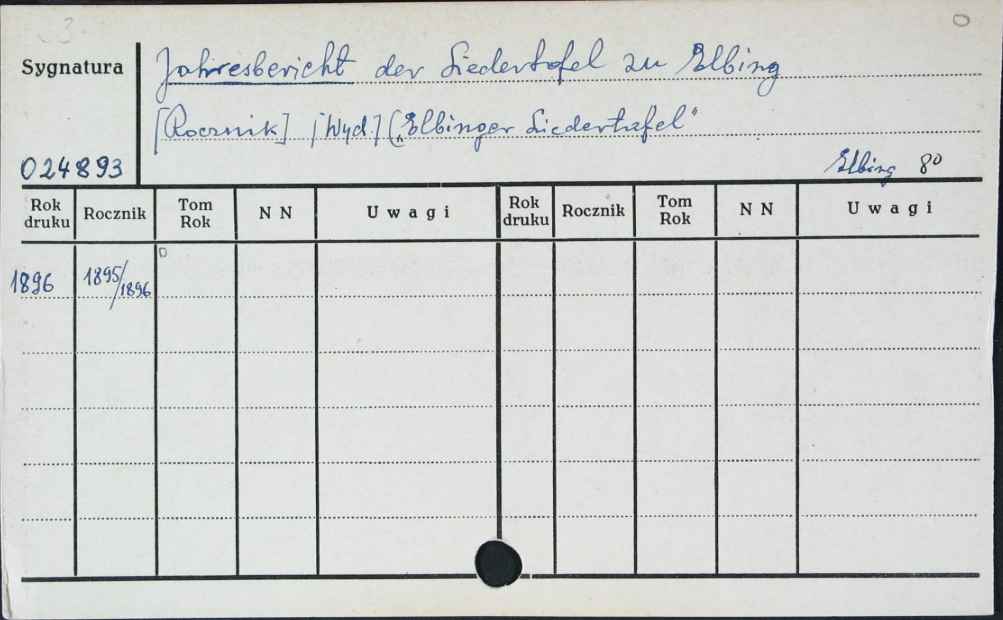 Sygnatura
Jahresbericht der Liedertafel zu Elbing
[Rocznik] [Wyd.] („Elbinger Liedertafel"
024893
Elbing 8º
Rok druku Rocznik Tom Rok N N Uwagi Rok druku Rocznik Tom Rok N N Uwagi
1896 1895/1896